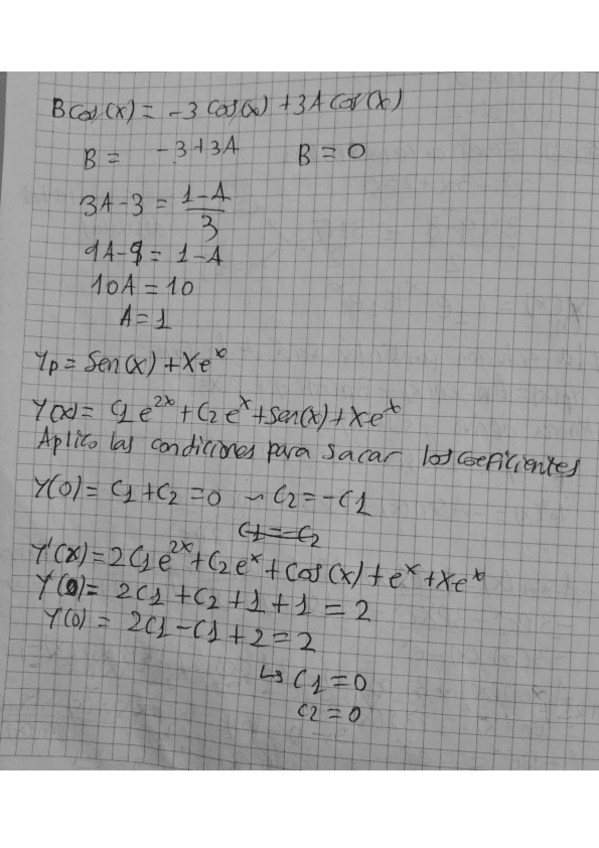 B cos(x) = -3 cos(x) + 3A cos(x)
B = -3+3A B = 0
3A-3 = (1-A)/3
9A-9 = 1-A
10A = 10
A = 1
Yp = Sen(x) + xe^x
Y(x) = C1 e^2x + C2 e^x + sen(x) + xe^x
Aplico las condiciones para sacar los coeficientes
Y(0) = C1 + C2 = 0 ~ C2 = -C1
C1 = -C2
Y'(x) = 2C1 e^2x + C2 e^x + cos(x) + e^x + xe^x
Y'(0) = 2C1 + C2 + 1 + 1 = 2
Y(0) = 2C1 - C1 + 2 = 2
↳ C1 = 0
C2 = 0